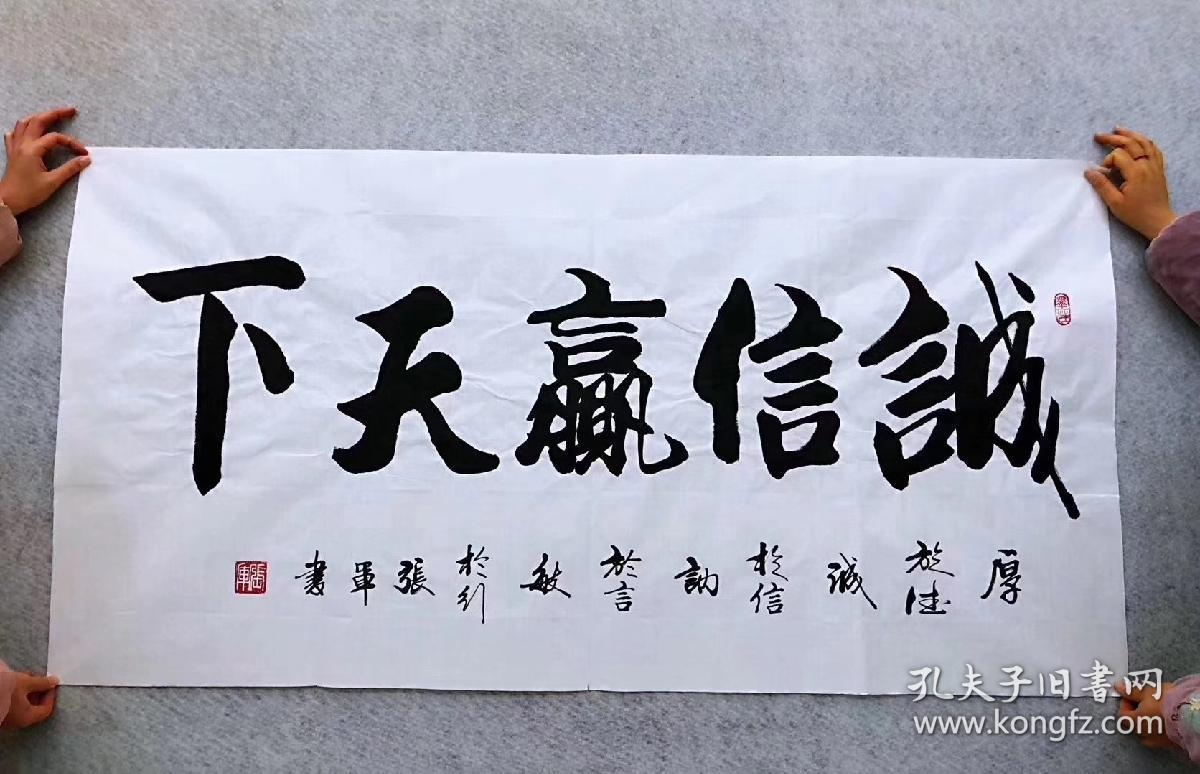 誠信贏天下
厚於德誠於信訥於言敏於行張軍書
張軍
孔夫子旧書网
www.kongfz.com